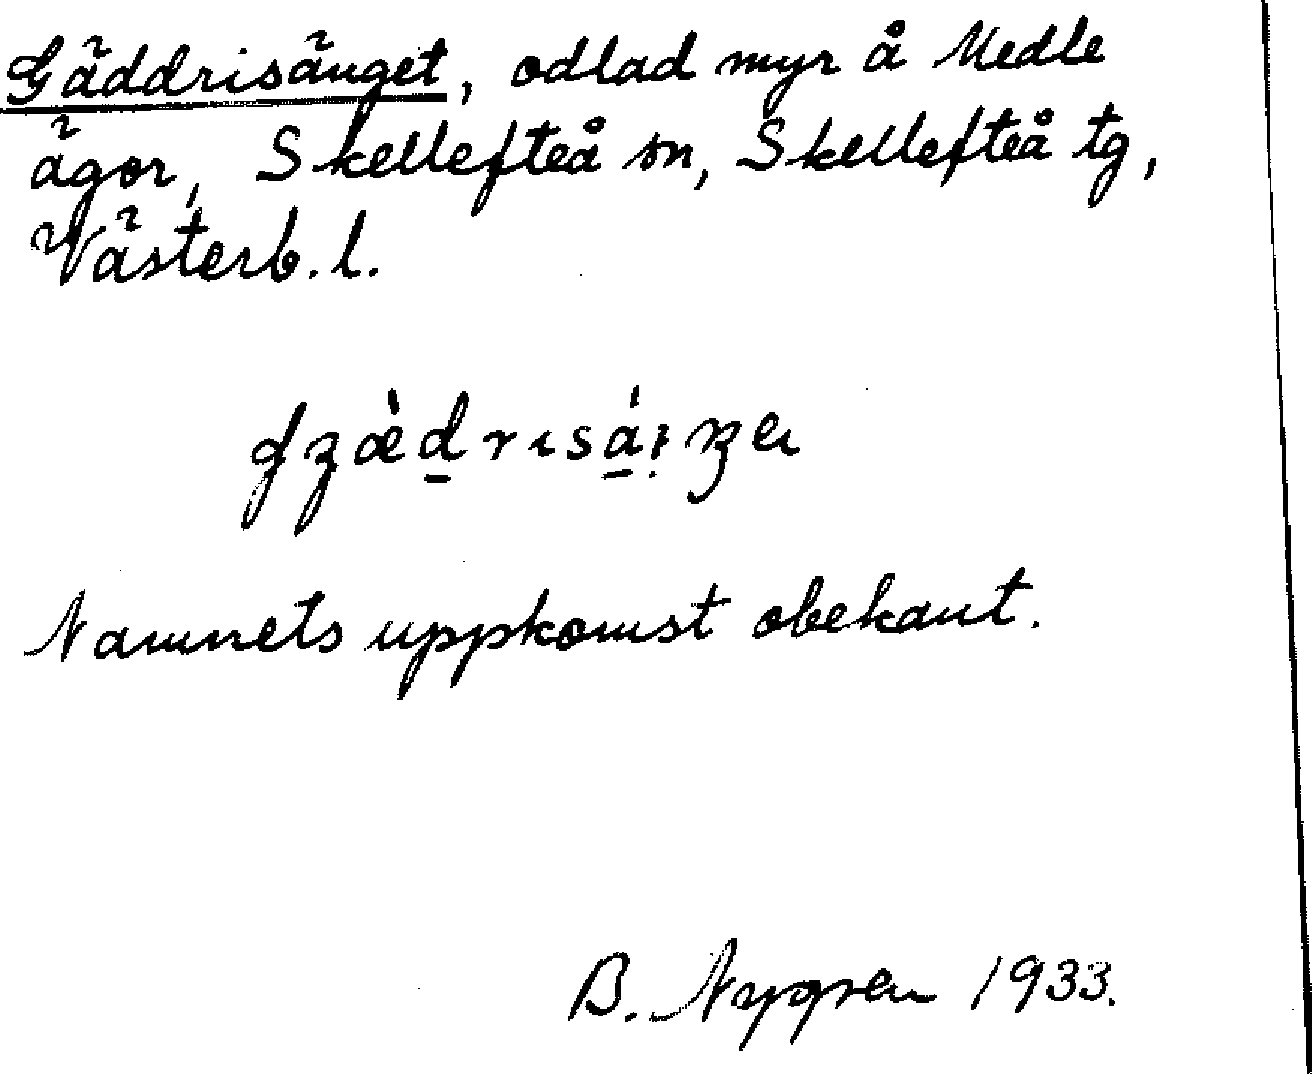 Gäddrisänget, odlad myr å Medle
ägor, Skellefteå sn, Skellefteå tg,
Västerb. l.
Namnets uppkomst obekant.
B. Nygren 1933.